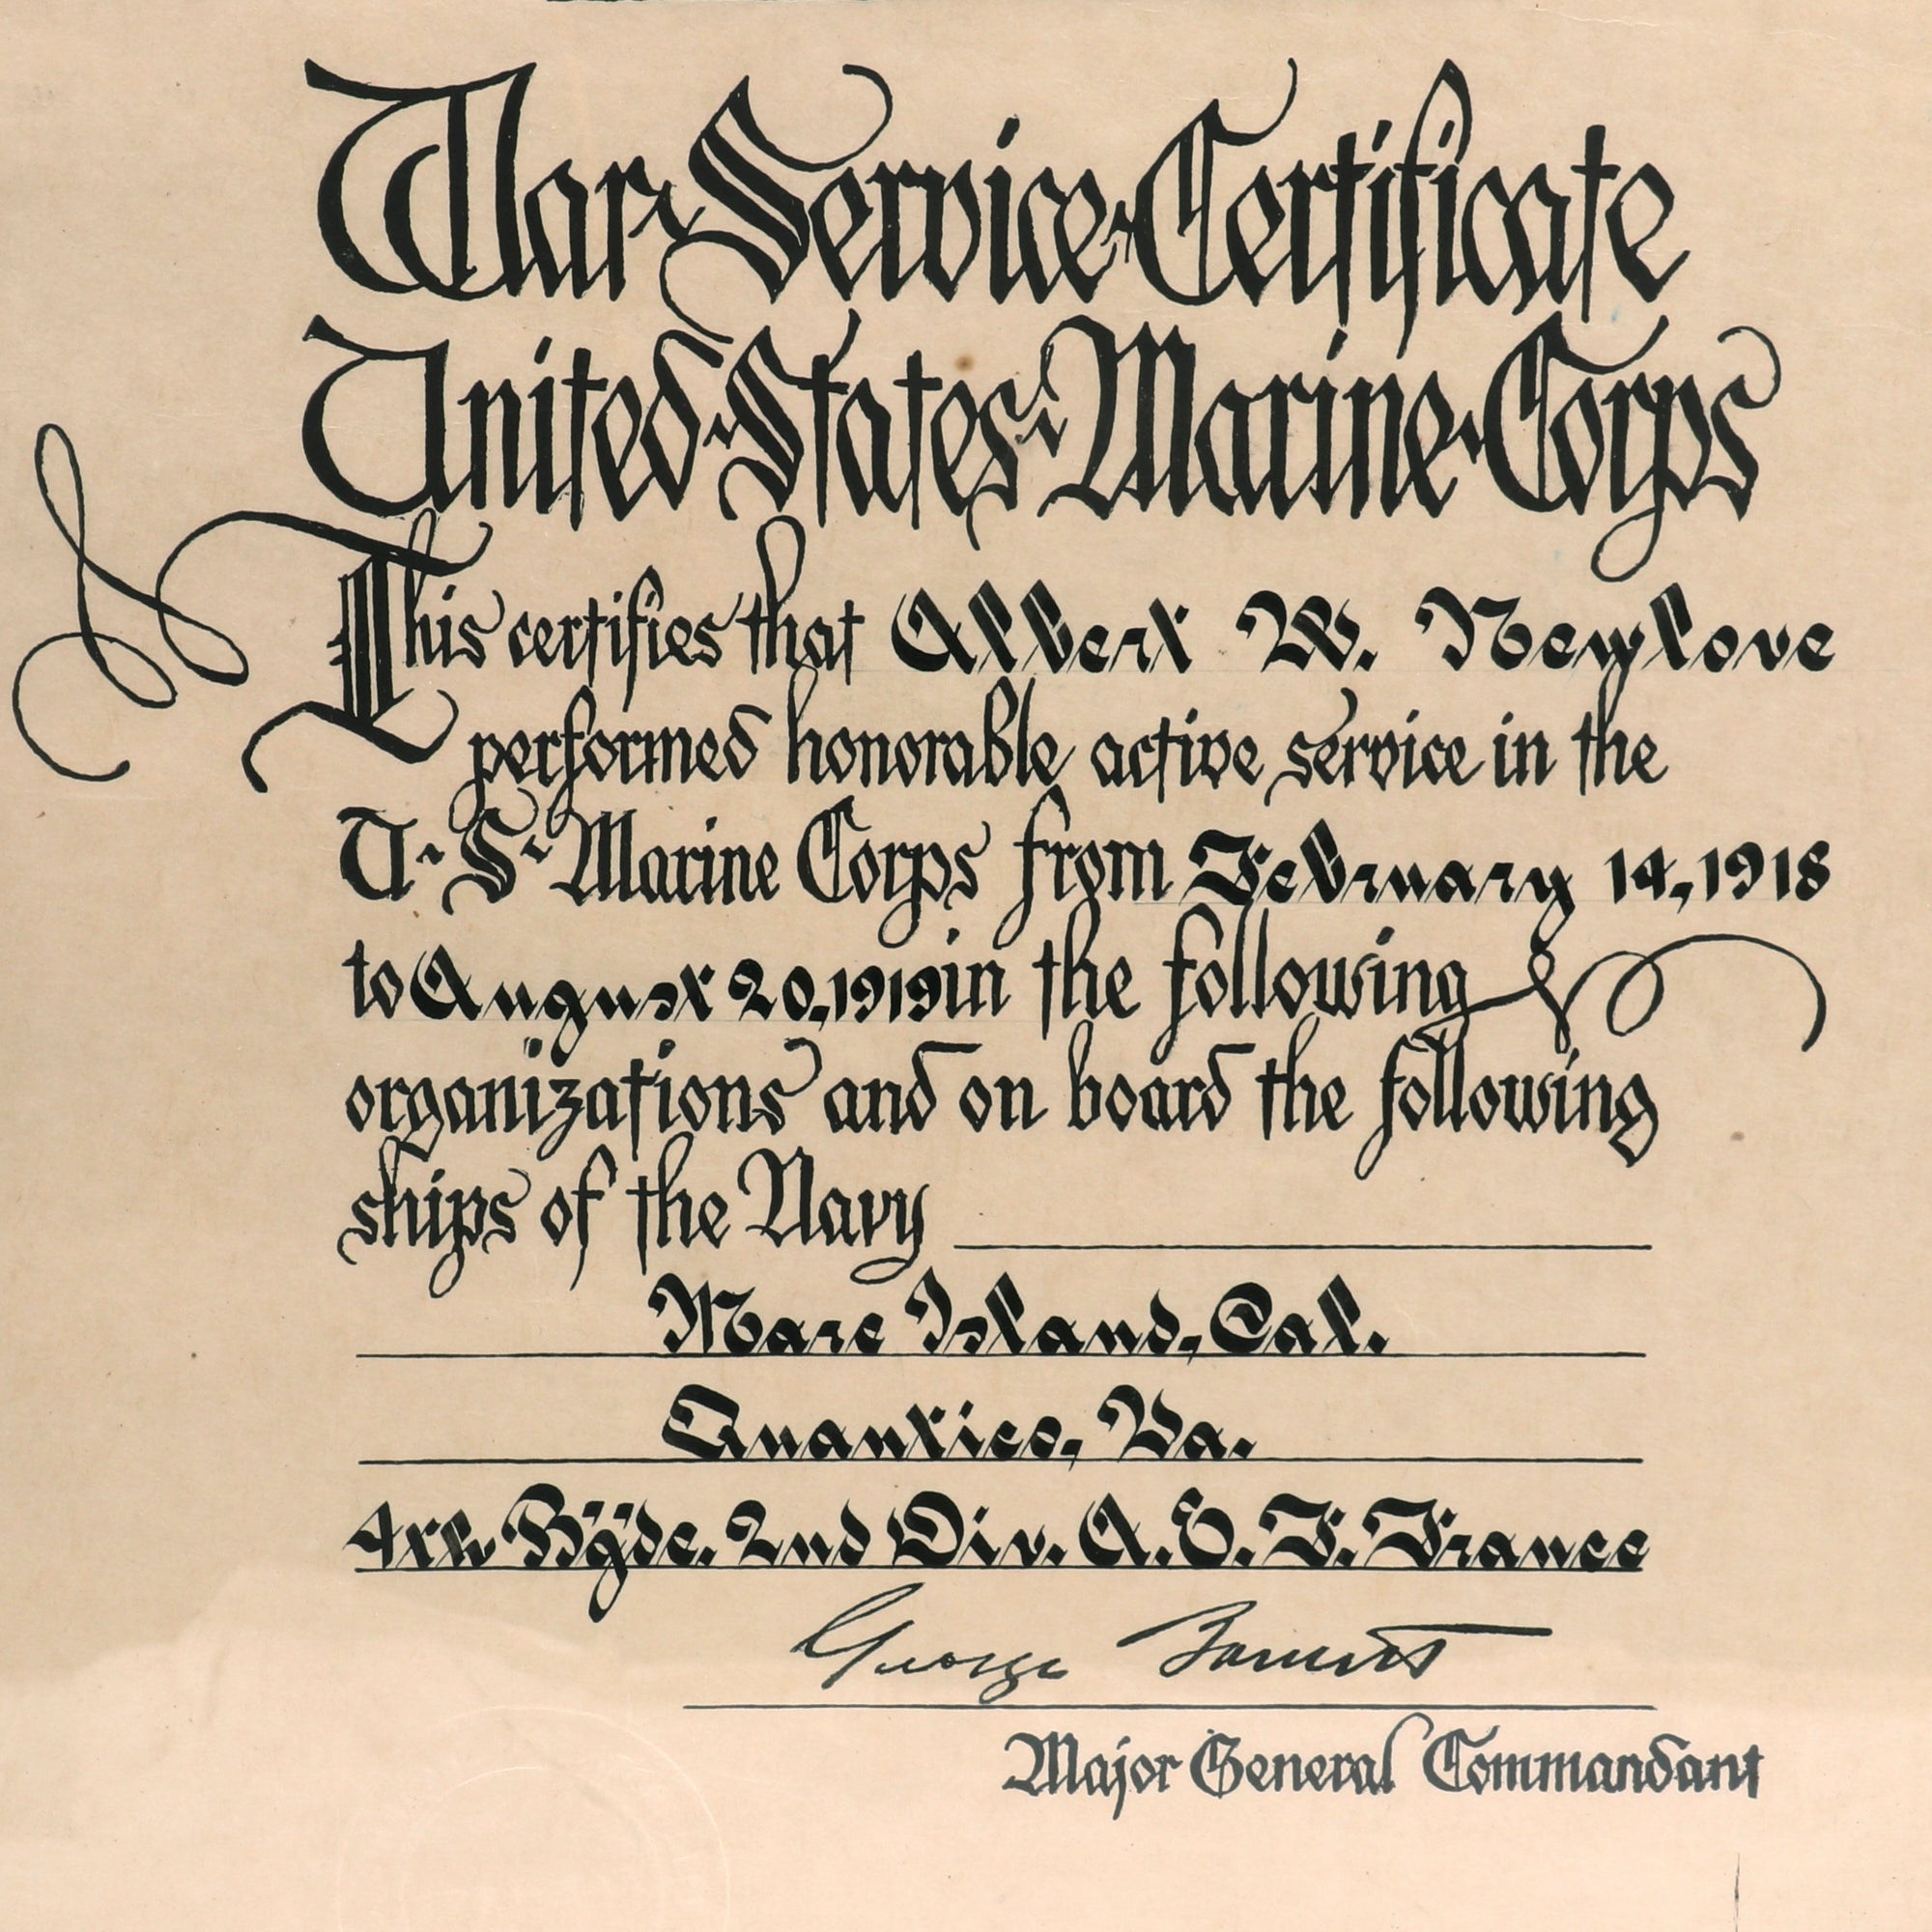 War Service Certificate
United States Marine Corps
This certifies that Albert W. Newlove
performed honorable active service in the
U. S. Marine Corps from February 14, 1918
to August 20, 1919 in the following
organizations and on board the following
ships of the Navy
Mare Island, Cal.
Quantico, Va.
4th Bgde. 2nd Div. A. E. F. France
George Barnett
Major General Commandant